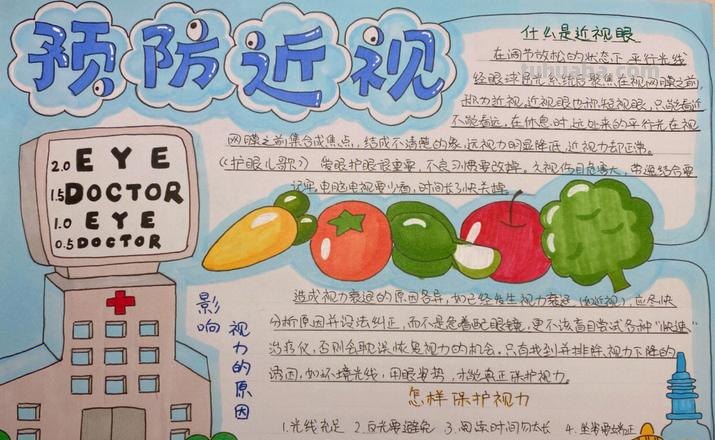 预防近视
什么是近视眼
在调节放松的状态下,平行光线
经眼球屈光系统后聚焦在视网膜之前,
称为近视,近视眼也称短视眼,只能看近
不能看远,在休息时,远处来的平行光在视
网膜之前集合成焦点,结成不清楚的象,远视力明显降低,近视力却正常。
《护眼儿歌》 爱眼护眼很重要,不良习惯要改掉。久视伤目危害大,劳逸结合要
记牢,电脑电视要少看,时间长了快关掉
2.0 EYE
1.5 DOCTOR
1.0 EYE
0.5 DOCTOR
影响视力的原因
造成视力衰退的原因各异,如已经发生视力衰退(如近视),应尽快
分析原因并设法纠正,而不是急着配眼镜,更不该盲目尝试各种“快速”
治疗仪,否则会耽误恢复视力的机会,只有找到并排除视力下降的
诱因,如环境光线,用眼姿势,才能真正保护视力。
怎样保护视力
1.光线充足 2.反光要避免 3.阅读时间勿太长 4.坐姿要端正